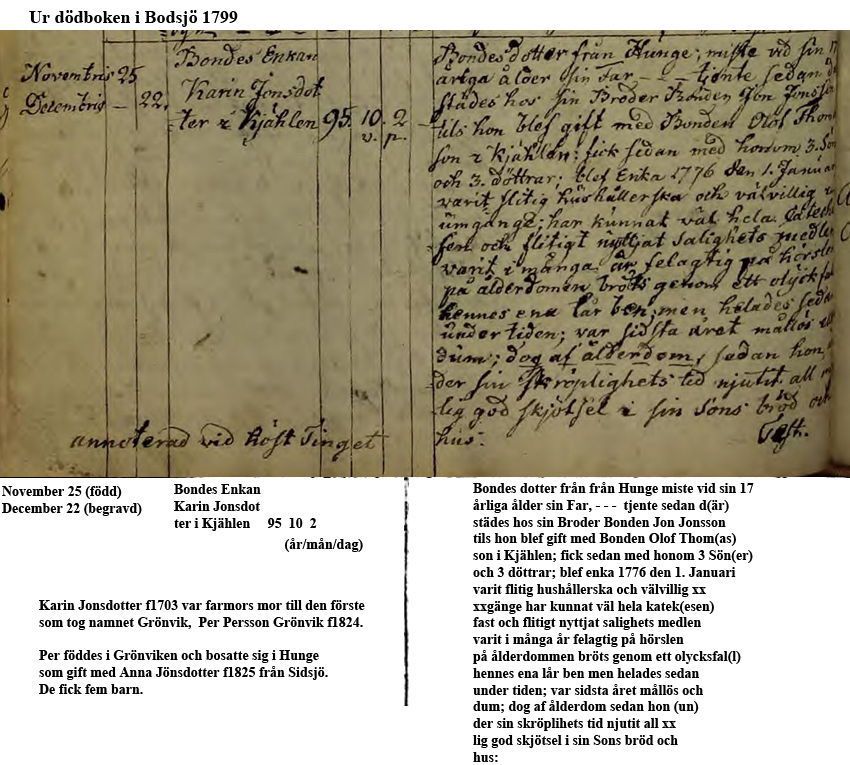 Ur dödboken i Bodsjö 1799
Novembris 25
Decembris – 22.
Bondes Enkan
Karin Jonsdot
ter i Kjählen 95. 10. 2
v. p.
Bondes dotter från Hunge; miste vid sin 17
årliga ålder sin Far - - - tjente sedan d
städes hos sin Broder Bonden Jon Jonsson
tils hon blef gift med Bonden Olof Thom
son i Kjählen; fick sedan med honom 3. Sön
och 3. döttrar; blef Enka 1776 den 1. Januar
varit flitig hushållerska och välvillig
umgänge; har kunnat väl hela Catech
sen och flitigt nyttjat Salighets medlen
varit i många år felagtig på hörslen
på ålderdomen bröts genom ett olycksfa
hennes ena lår ben, men helades sedan
under tiden; var sidsta året mållös
dum; dog af ålderdom, sedan hon
der sin skröplighets tid njutit all
lig god skjötsel i sin Sons bröd och
hus:
annoterad vid Höst Tinget
November 25 (född)
December 22 (begravd)
Bondes Enkan
Karin Jonsdot
ter i Kjählen 95 10 2
(år/mån/dag)
Karin Jonsdotter f1703 var farmors mor till den förste
som tog namnet Grönvik, Per Persson Grönvik f1824.
Per föddes i Grönviken och bosatte sig i Hunge
som gift med Anna Jönsdotter f1825 från Sidsjö.
De fick fem barn.
Bondes dotter från från Hunge miste vid sin 17
årliga ålder sin Far, - - - tjente sedan d(är)
städes hos sin Broder Bonden Jon Jonsson
tils hon blef gift med Bonden Olof Thom(as)
son i Kjählen; fick sedan med honom 3 Sön(er)
och 3 döttrar; blef enka 1776 den 1. Januari
varit flitig hushållerska och välvillig xx
xxgänge har kunnat väl hela katek(esen)
fast och flitigt nyttjat salighets medlen
varit i många år felagtig på hörslen
på ålderdommen bröts genom ett olycksfal(l)
hennes ena lår ben men helades sedan
under tiden; var sidsta året mållös och
dum; dog af ålderdom sedan hon (un)
der sin skröplihets tid njutit all xx
lig god skjötsel i sin Sons bröd och
hus: